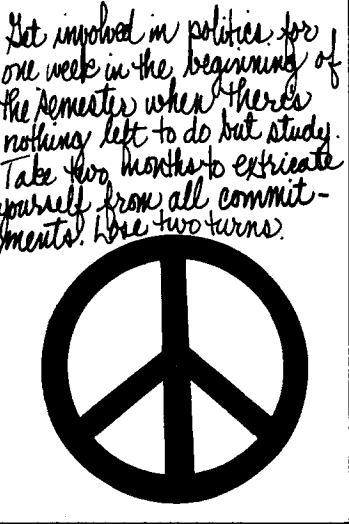 Get involved in politics for
one week in the beginning of
the semester when there's
nothing left to do but study.
Take two months to extricate
yourself from all commit-
ments. Lose two turns.